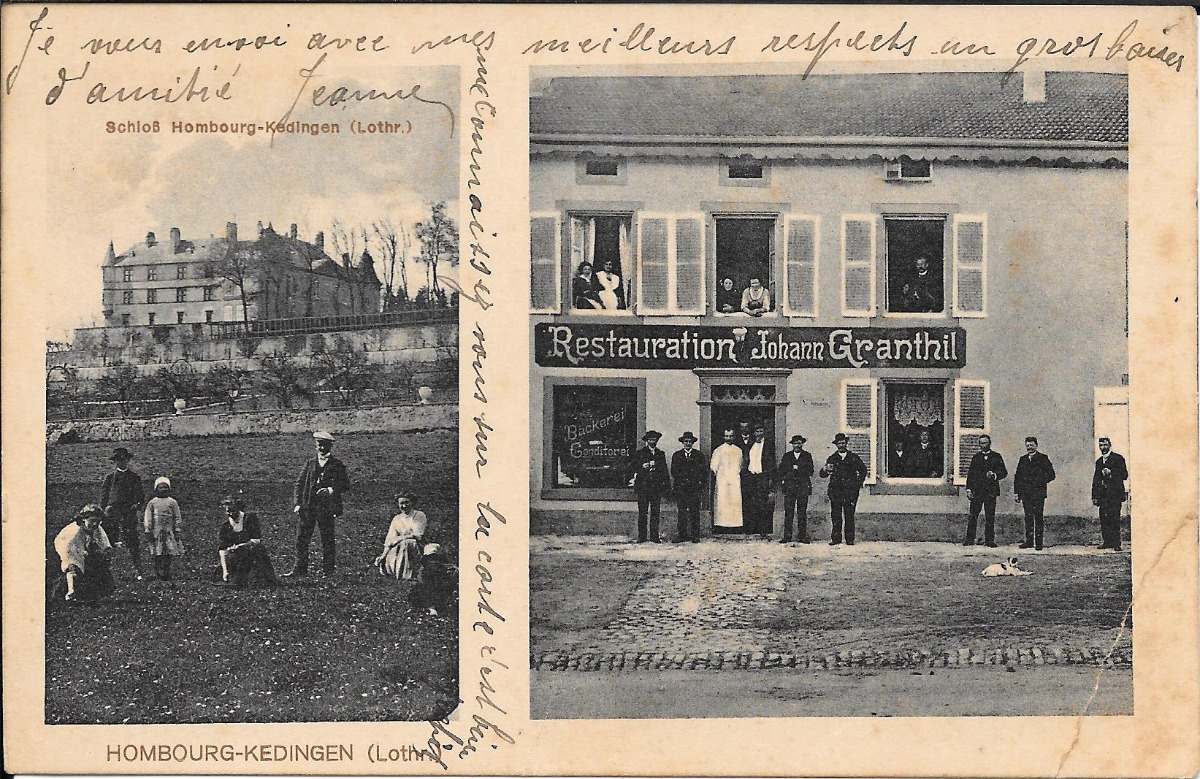 Je vous envoi avec mes meilleurs respects un gros baiser
d'amitié Jeanne
Schloß Hombourg-Kedingen (Lothr.)
me Connaissiz vous sur la carte c'est bin
Restauration Johann Granthil
Bäckerei
Conditorei
HOMBOURG-KEDINGEN (Lothr